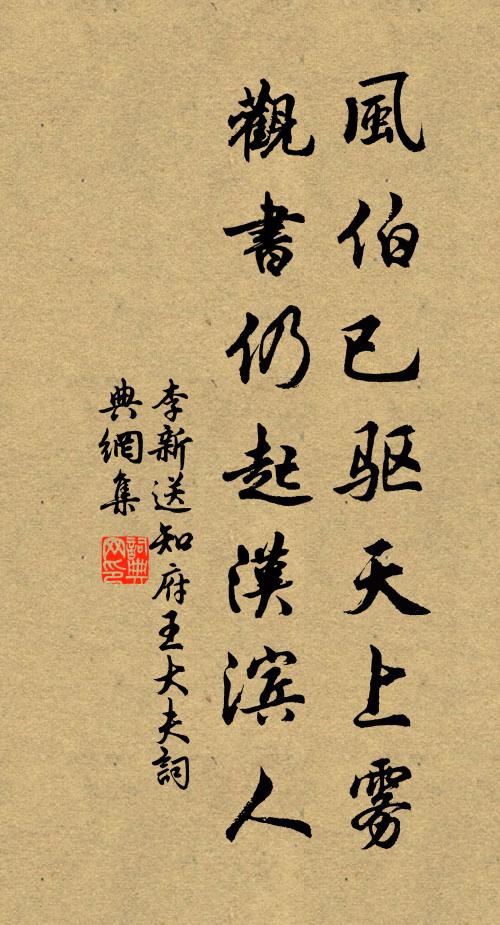 風伯已驱天上雾
觀書仍起漢滨人
李新送知府王大夫詞
典網集
詞典
网印